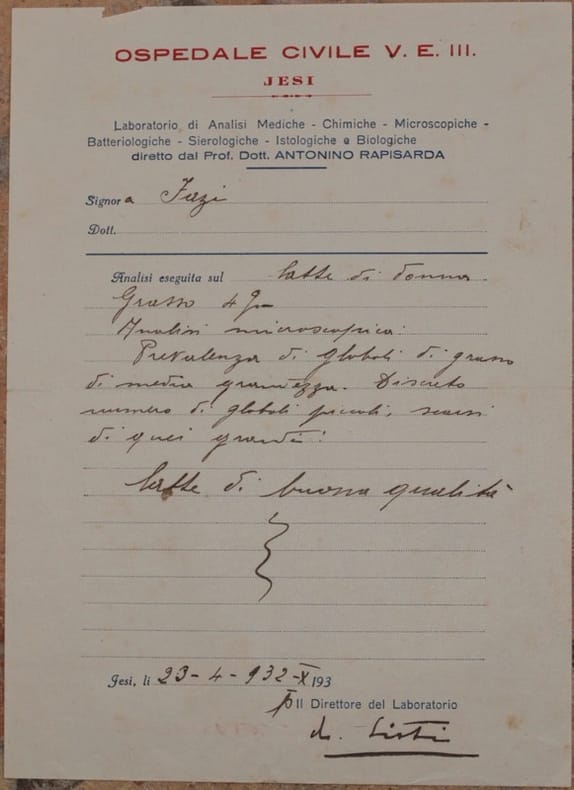 OSPEDALE CIVILE V. E. III.
JESI
Laboratorio di Analisi Mediche - Chimiche - Microscopiche -
Batteriologiche - Sierologiche - Istologiche e Biologiche
diretto dal Prof. Dott. ANTONINO RAPISARDA
Signora Fazi
Dott.
Analisi eseguita sul latte di donna
Grasso 4
Analisi microscopica:
Prevalenza di globoli di grasso
di media grandezza. Discreto
numero di globoli piccoli, scarsi
di quei grandi.
Latte di buona qualità
Jesi, li 23-4-932-X 193
p Il Direttore del Laboratorio